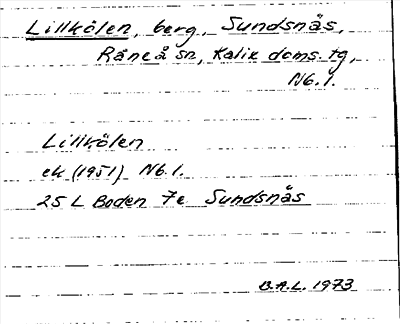 Lillkölen, berg, Sundsnäs,
Råneå sn, Kalix doms. tg,
Nb. l.
Lillkölen
ek (1951) Nb. l.
25 L Boden 7e Sundsnäs
B.A.L. 1973